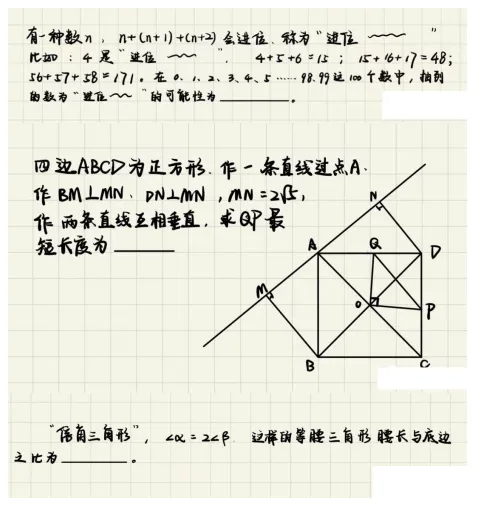 有一种数n，n+(n+1)+(n+2)会进位.称为"进位～～～"
比如：4是"进位～～". 4+5+6=15；15+16+17=48；
56+57+58=171。在0、1、2、3、4、5……98.99这100个数中，抽到
的数为"进位～～"的可能性为______。
四边ABCD为正方形.作一条直线过点A.
作BM⊥MN、DN⊥MN，MN=2√5，
作两条直线互相垂直，求QP最
短长度为______
N
A
Q
D
M
O
P
B
C
"倍角三角形"，∠α=2∠β. 这样的等腰三角形腰长与底边
之比为______。